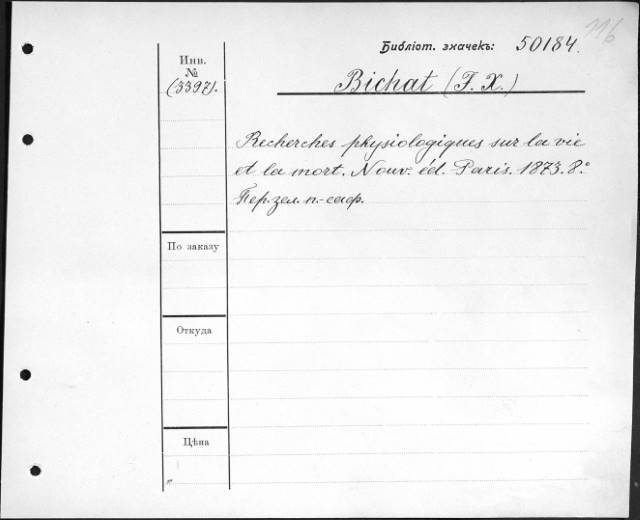 116
Библіот. значекъ: 50184.
Инв.
№
(3397).
Bichat (F. X.)
Recherches physiologiques sur la vie
et la mort. Nouv. éd. Paris. 1873. 8.°
Пер. зел. п.-саф.
По заказу
Откуда
Цѣна